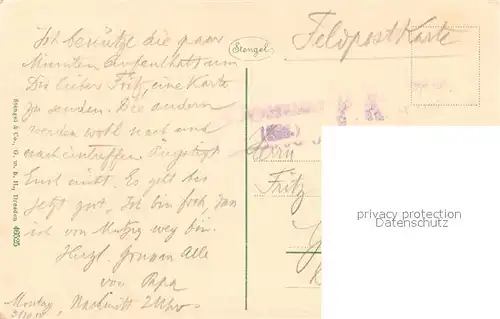 Ich benütze die paar
Minuten Aufenthalt um
Dir lieber Fritz, eine Karte
zu senden. Die andern
werden wohl nach und
nach eintreffen. Ängstigt
Euch nicht. Es geht bis
jetzt gut. Ich bin froh, dass
ich von Metzig weg bin.
Herzl. Grüsse an Alle
von Papa
Montag, Nachmitt 2 Uhr
Stengel
Feldpostkarte
Herrn
Fritz
Stengel & Co., G. m. b. H., Dresden
privacy protection
privacy protection